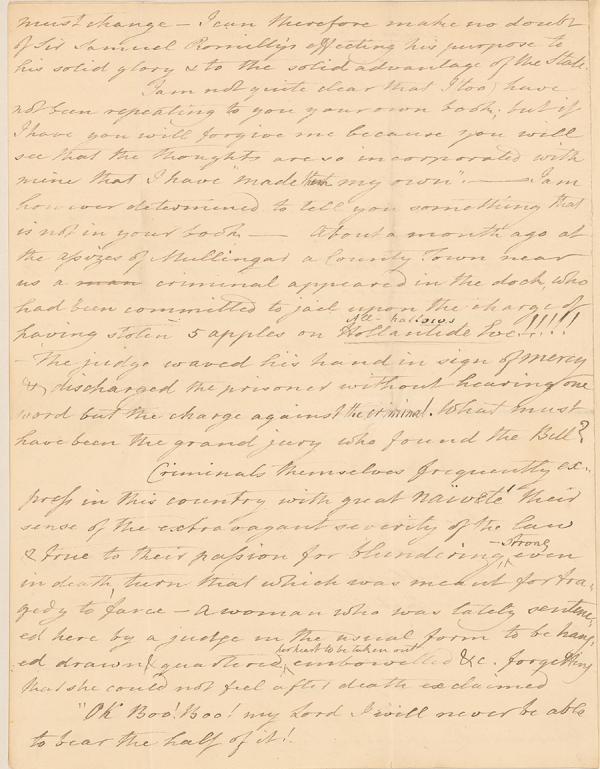 must change – I can therefore make no doubt
of Sir Samuel Romilly's effecting his purpose to
his solid glory & to the solid advantage of the State.
I am not quite clear that I too, have
not been repeating to you your own book; but if
I have you will forgive me because you will
see that the thoughts are so incorporated with
mine that I have "made them my own". — I am
however determined to tell you something that
is not in your book — About a month ago at
the assizes of Mullingar a County Town near
us a man criminal appeared in the dock, who
had been committed to jail upon the charge of
All-hallows
having stolen 5 apples on Hollantide Eve!!!!!
– The judge waved his hand in sign of mercy
& discharged the prisoner without hearing one
word but the charge against the criminal. What must
have been the grand jury who found the Bill?
Criminals themselves frequently ex-
press in this country with great naiveté their
sense of the extravagant severity of the law
& true to their passion for blundering – strong even
in death, turn that which was meant for tra-
gedy to farce – A woman who was lately sentenc-
ed here by a judge in the usual form to be hang-
ed drawn & quartered, her heart to be taken out embowelled &c. forgetting
that she could not feel after death exclaimed
"Oh Boo! Boo! my Lord I will never be able
to bear the half of it!